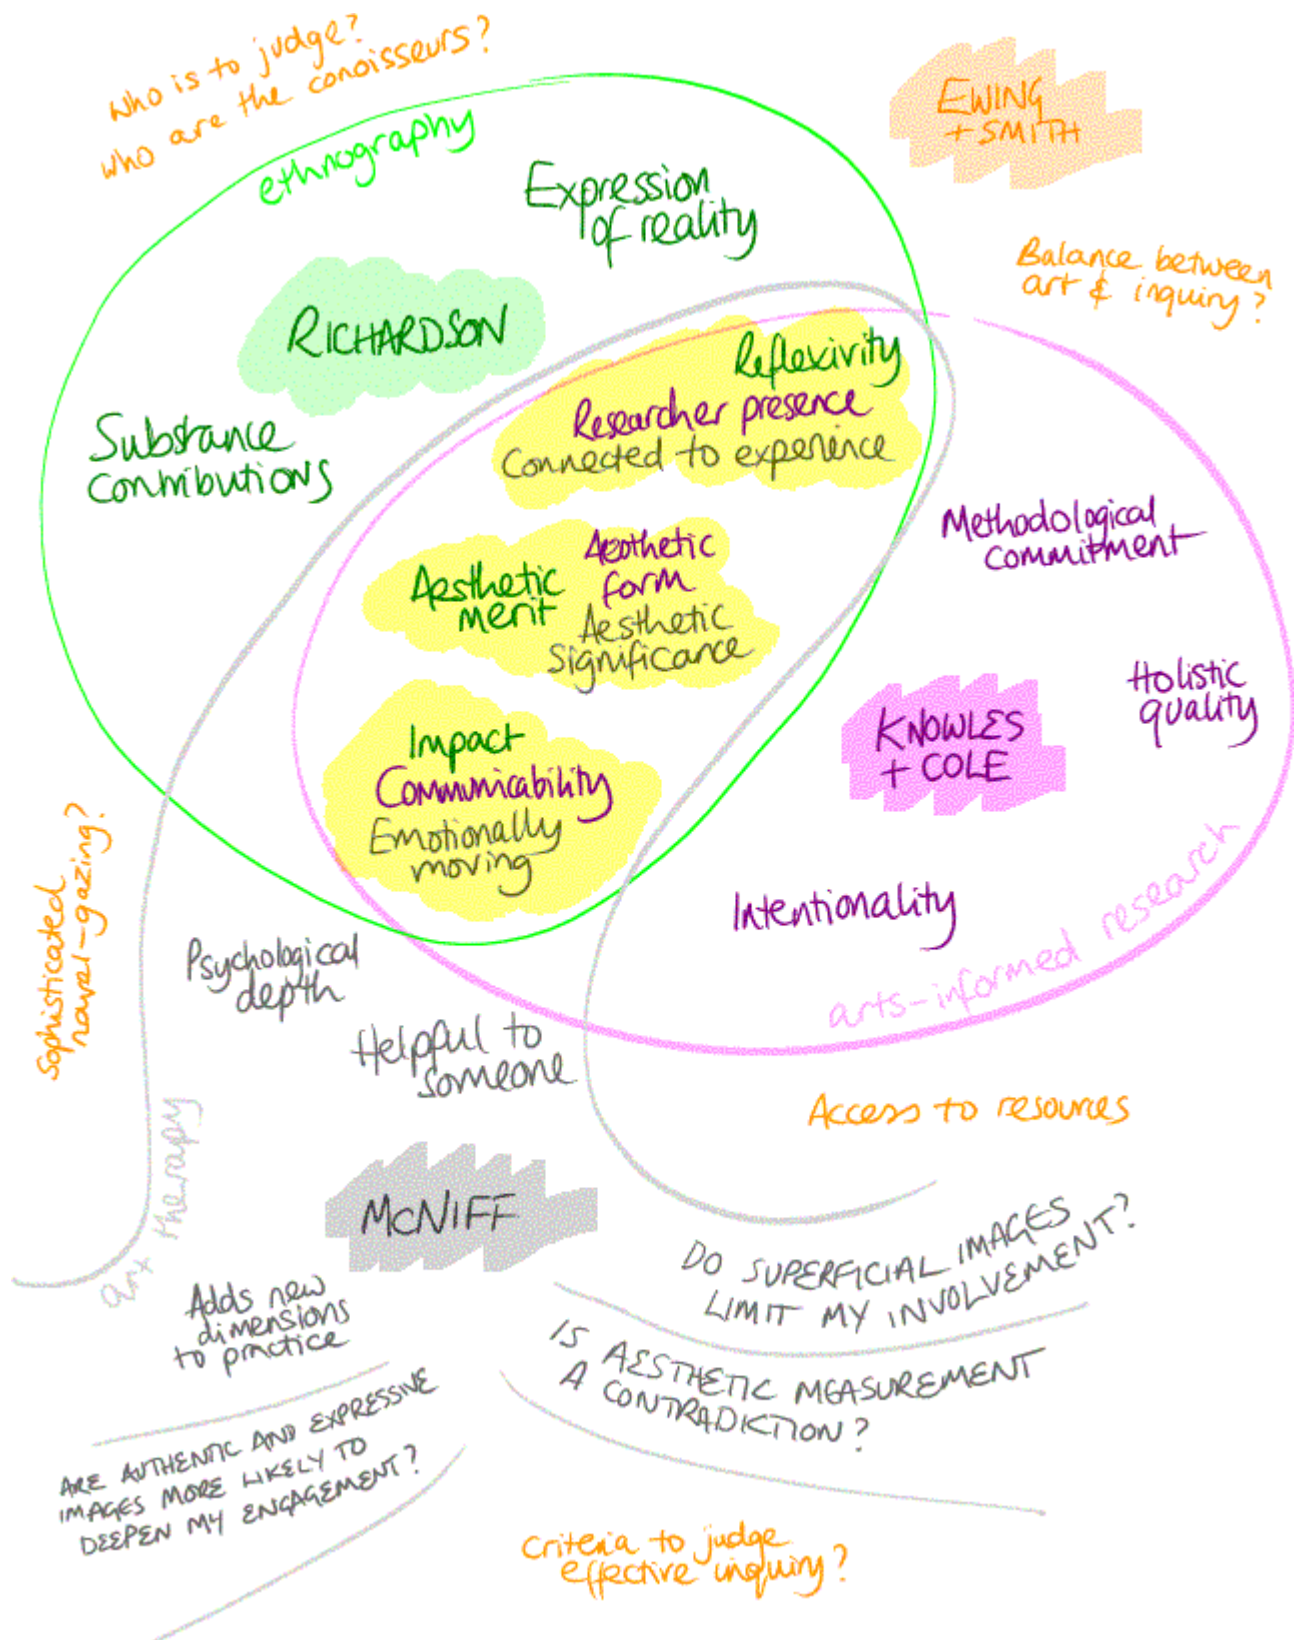 Who is to judge?
who are the conoisseurs?
EWING
+ SMITH
ethnography
Expression
of reality
Balance between
art & inquiry?
RICHARDSON
Substance
contributions
Reflexivity
Researcher presence
Connected to experience
Methodological
commitment
Aesthetic
merit
Aesthetic
form
Aesthetic
significance
Holistic
quality
KNOWLES
+ COLE
Impact
Communicability
Emotionally
moving
Intentionality
arts-informed research
Sophisticated
navel-gazing?
Psychological
depth
Helpful to
someone
Access to resources
art therapy
McNIFF
DO SUPERFICIAL IMAGES
LIMIT MY INVOLVEMENT?
Adds new
dimensions
to practice
IS AESTHETIC MEASUREMENT
A CONTRADICTION?
ARE AUTHENTIC AND EXPRESSIVE
IMAGES MORE LIKELY TO
DEEPEN MY ENGAGEMENT?
Criteria to judge
effective inquiry?